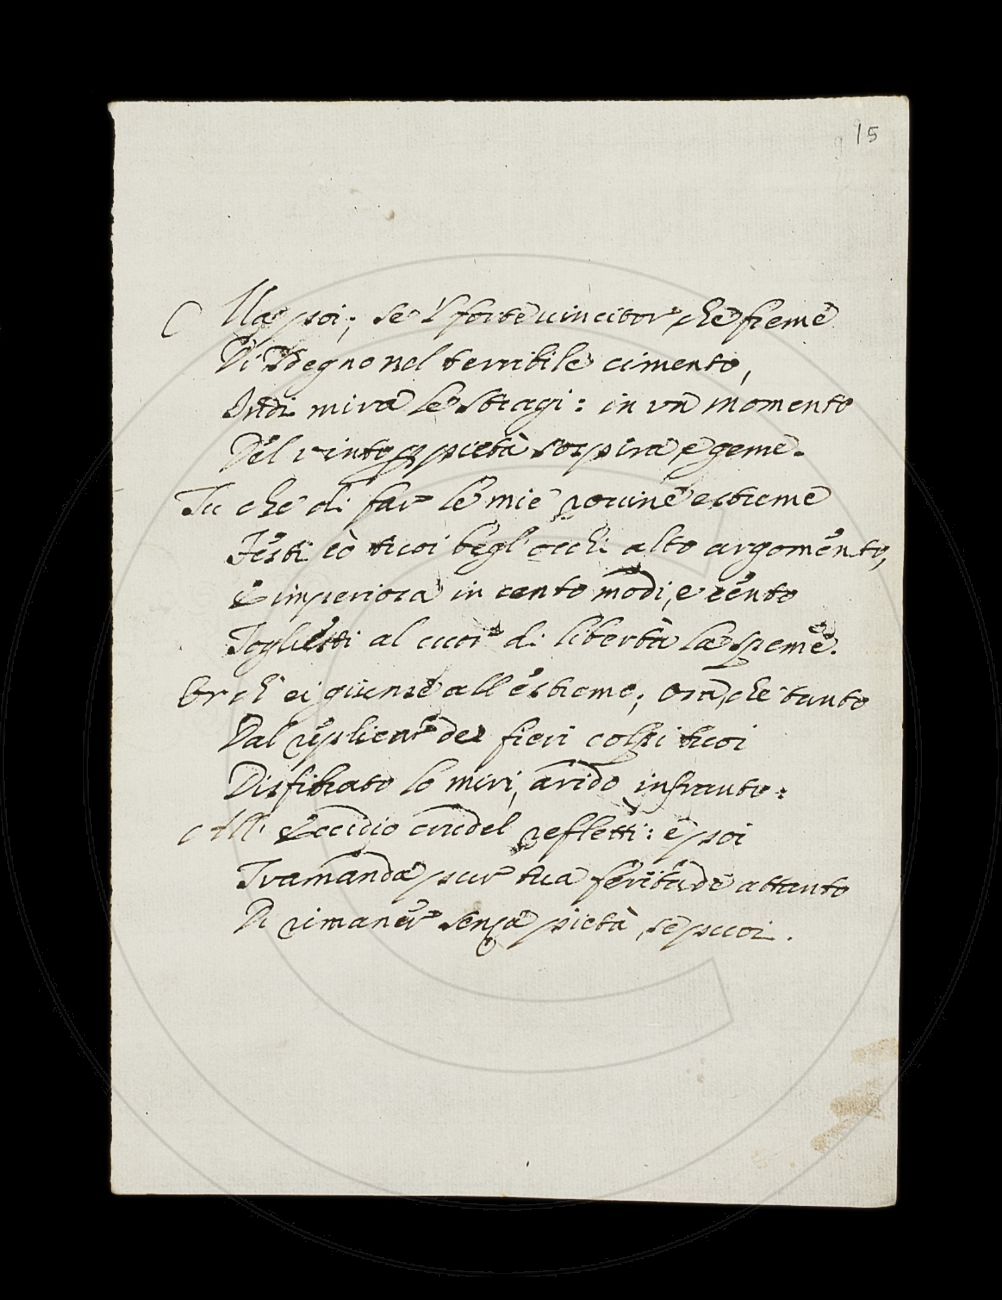 15
Ma poi, se 'l forte vincitor, che freme
Di sdegno nel terribile cimento,
Indi mira le stragi: in vn momento
Del vinto p pietà sospira, e geme.
Tu che di far le mie rouine estreme
Festi cò tuoi begl' occhi alto argomento,
E imperiosa in cento modi, e cento
Togliesti al cuor di libertà la speme.
Or ch' ei giunse all' estremo; ora, che tanto
Dal replicar de fieri colpi tuoi
Disfibrato lo miri, arido, infranto:
All' Eccidio crudel refletti: e poi
Tramanda pur tua feritade attanto
Di rimaner senza pietà, se puoi.